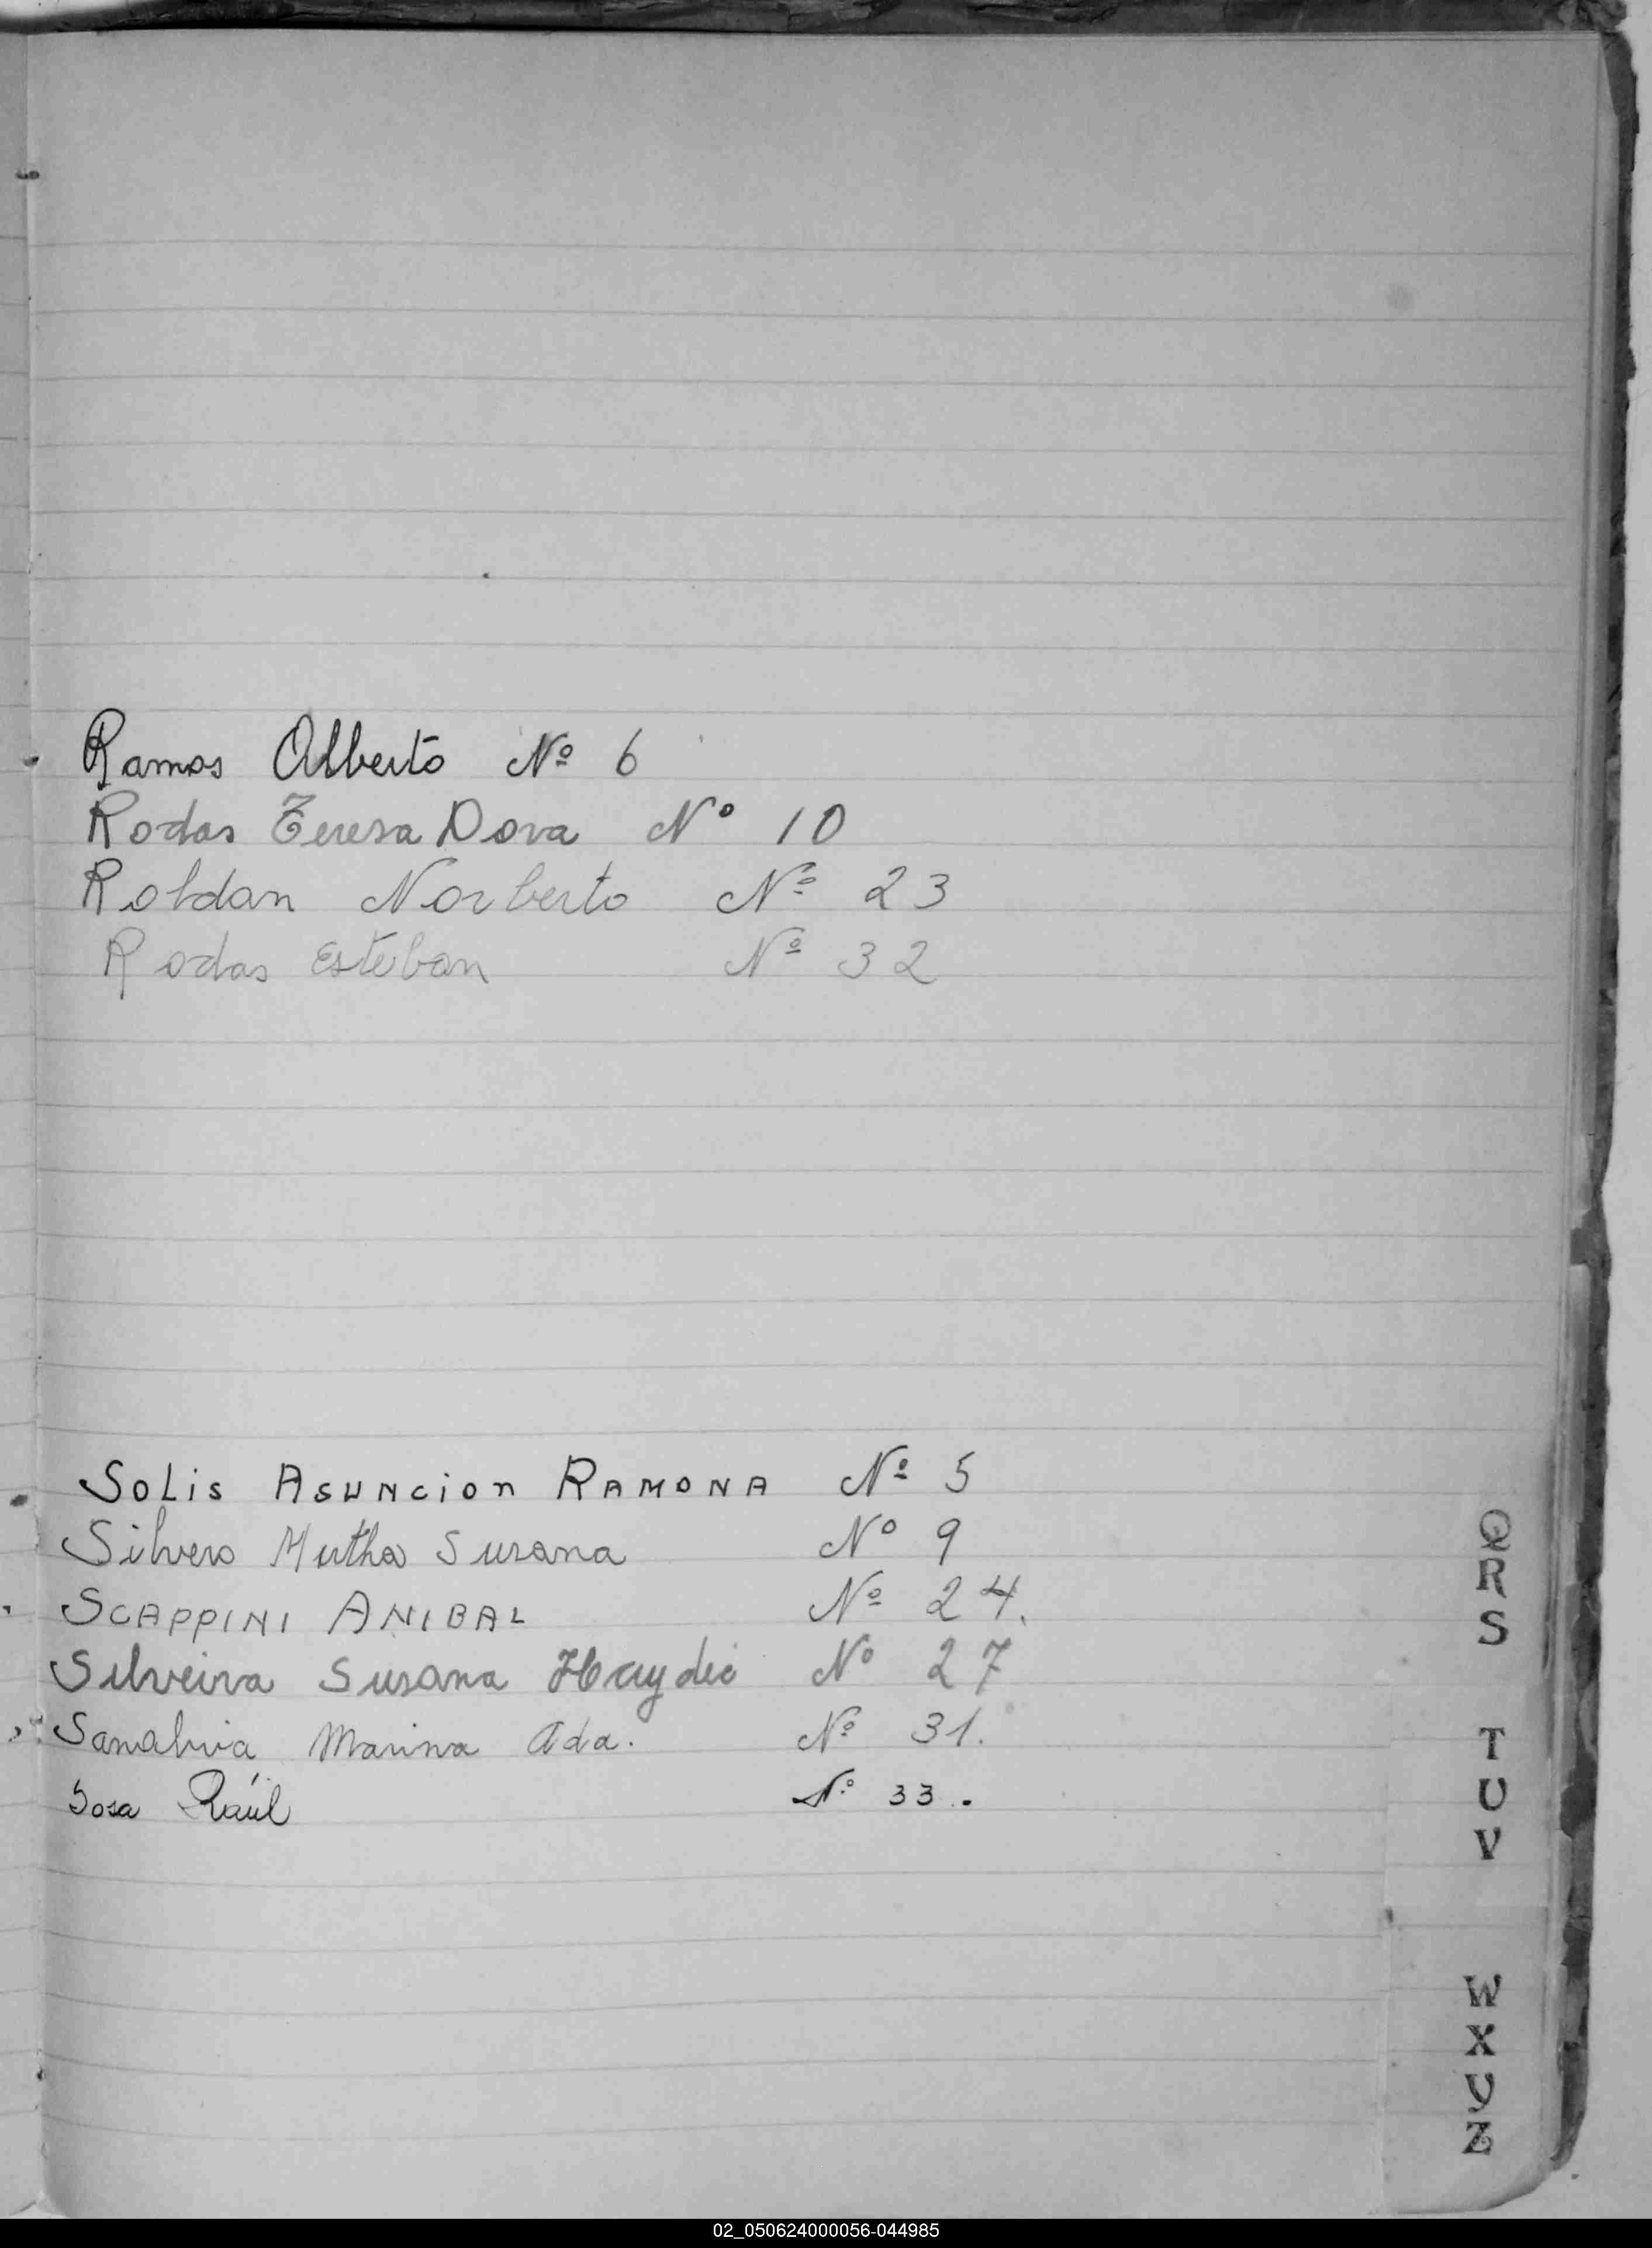 Ramos Alberto Nº 6
Rodas Teresa Dora Nº 10
Roldan Norberto Nº 23
Rodas Esteban Nº 32
Solis Asuncion Ramona Nº 5
Silvero Mirtha Susana Nº 9
SCAPPINI ANIBAL Nº 24.
Silveira Susana Haydée Nº 27
Sanabria Marina Ada. Nº 31.
Sosa Raúl Nº 33.
Q
R
S
T
U
V
W
X
Y
Z
02_050624000056-044985